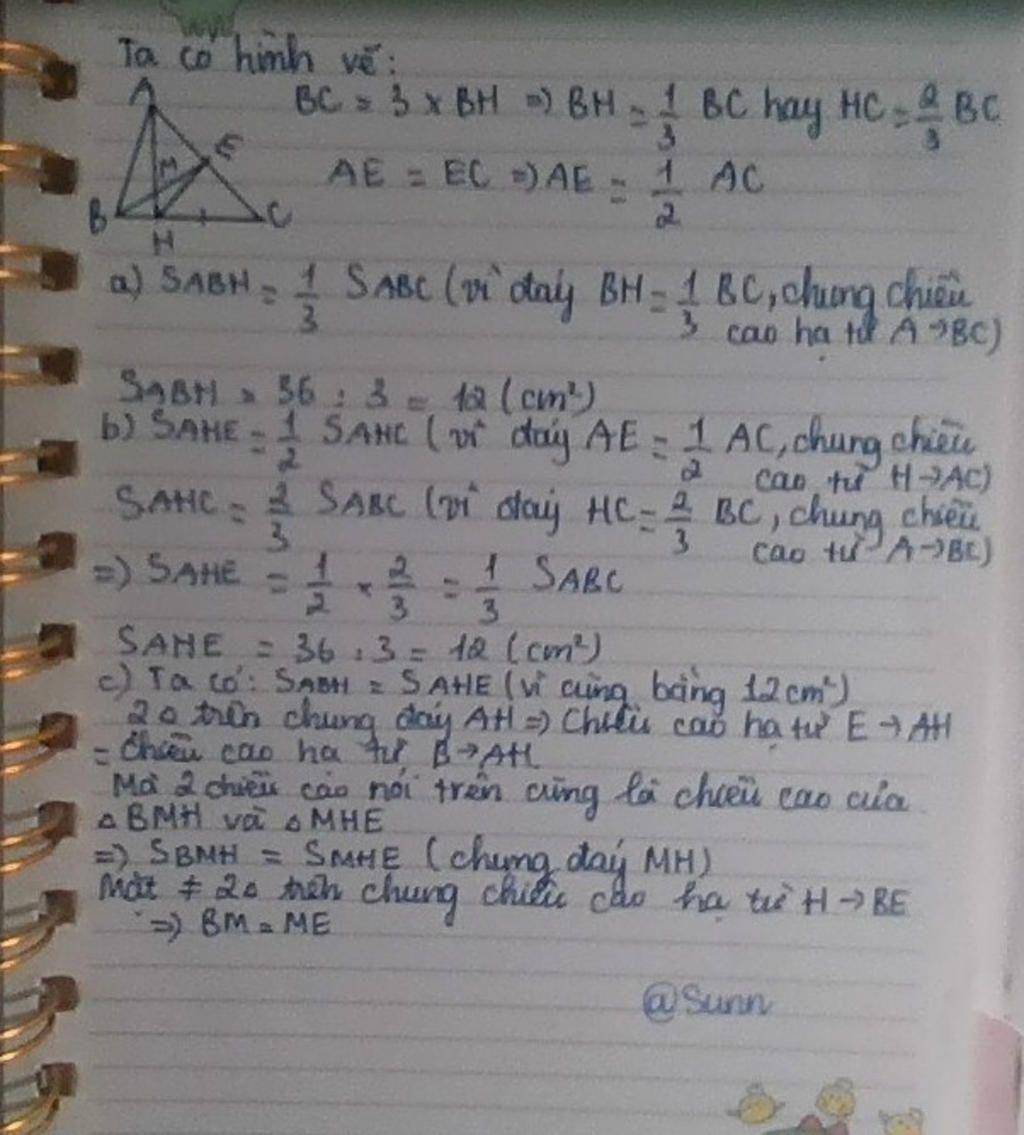 Ta có hình vẽ:
A
BC = 3 x BH => BH = 1/3 BC hay HC = 2/3 BC
E
M
AE = EC => AE = 1/2 AC
B C
H
a) SABH = 1/3 SABC (vì đáy BH = 1/3 BC, chung chiều
cao hạ từ A → BC)
SABH = 36 : 3 = 12 (cm²)
b) SAHE = 1/2 SAHC (vì đáy AE = 1/2 AC, chung chiều
cao từ H → AC)
SAHC = 2/3 SABC (vì đáy HC = 2/3 BC, chung chiều
cao từ A → BC)
=> SAHE = 1/2 x 2/3 = 1/3 SABC
SAHE = 36 : 3 = 12 (cm²)
c) Ta có: SABH = SAHE (vì cùng bằng 12cm²)
2 △ trên chung đáy AH => Chiều cao hạ từ E → AH
= chiều cao hạ từ B → AH
Mà 2 chiều cao nói trên cũng là chiều cao của
△ BMH và △ MHE
=> SBMH = SMHE (chung đáy MH)
Mặt ≠ 2 △ trên chung chiều cao hạ từ H → BE
=> BM = ME
@Sunn